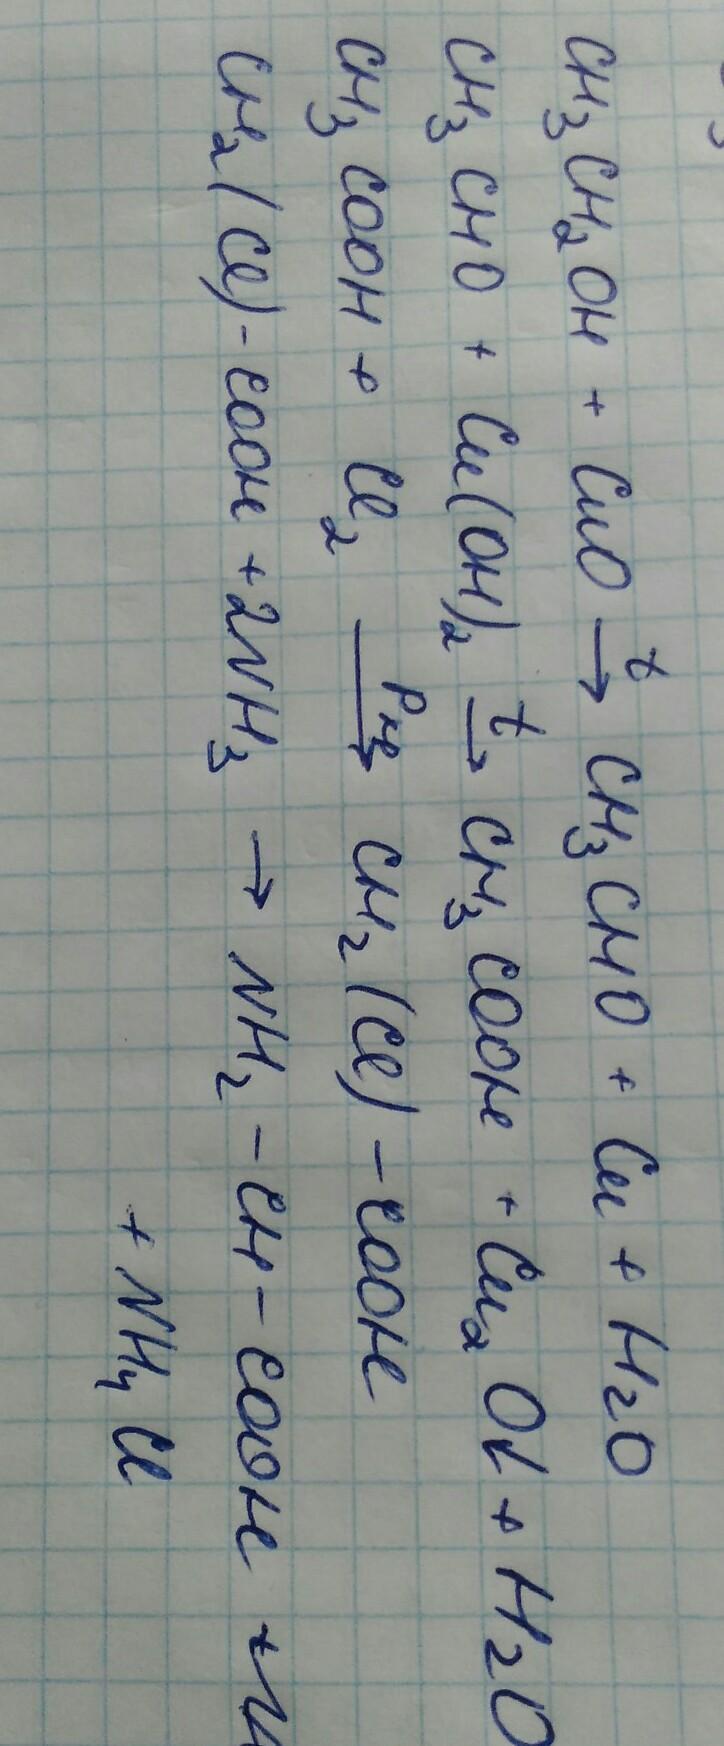 CH₃CH₂OH + CuO →ᵗ CH₃CHO + Cu + H₂O
CH₃CHO + Cu(OH)₂ →ᵗ CH₃COOH + Cu₂O↓ + H₂O
CH₃COOH + Cl₂ → CH₂(Cl)-COOH
CH₂(Cl)-COOH + 2NH₃ → NH₂-CH-COOH +
+ NH₄Cl